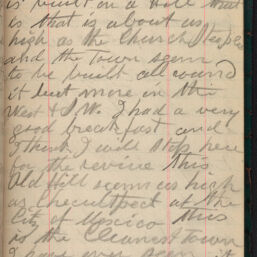 is built on a hill that
is that is about as
high as the Church Steeple
and the town seem
to be built all around
it but more in the
West & S.W. I had a very
good breakfast and
I think I will stop here
for the revine this
Old Hill seems as high
as Checultpect at the
City of Mexico this
is the Cleanest town
I have ever seen it